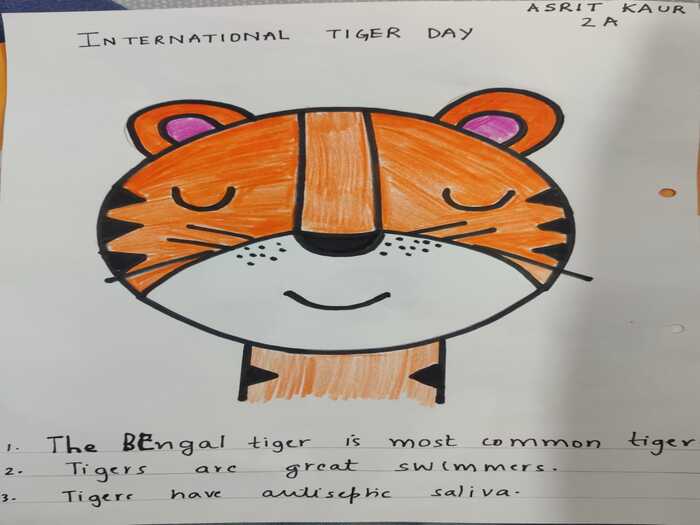 ASRIT KAUR
2A
INTERNATIONAL TIGER DAY
1. The BEngal tiger is most common tiger
2. Tigers are great swimmers.
3. Tigers have antiseptic saliva.